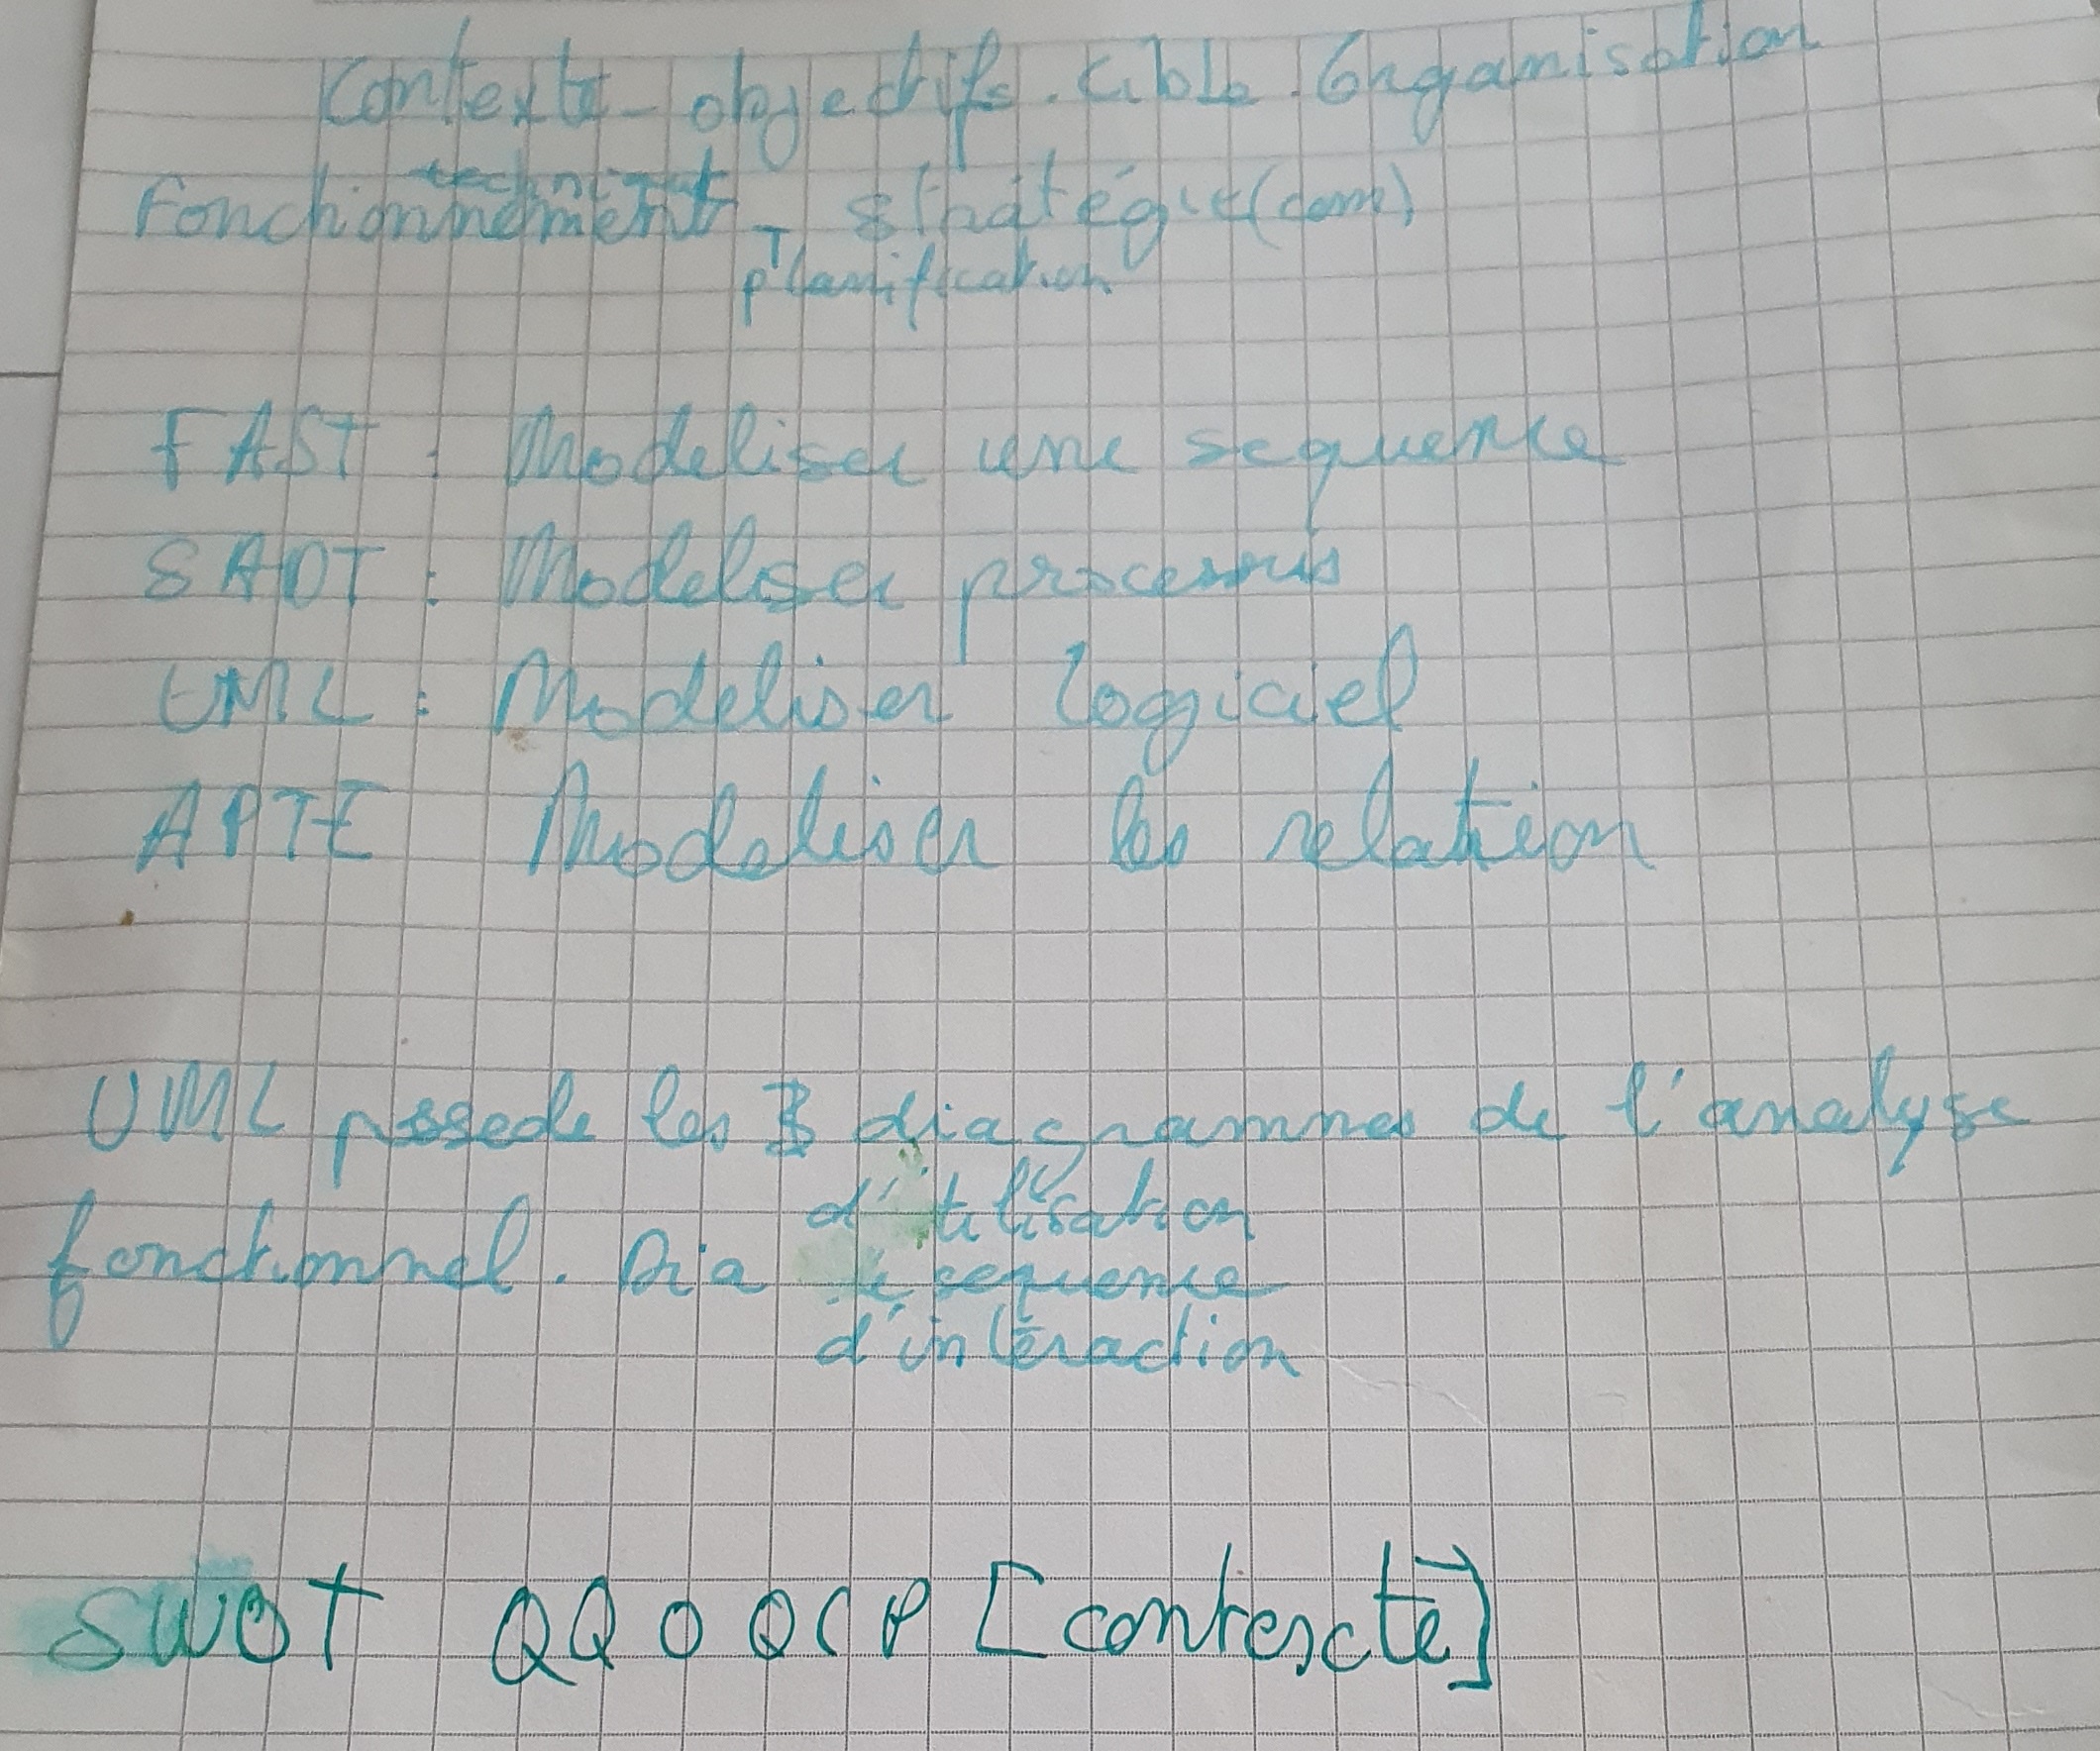 Contexte - objectifs. cible. Organisation
technique
Fonctionnement - stratégie (com)
planification
FAST : Modeliser une sequence
SADT : Modeliser processus
UML : Modeliser logiciel
APTE Modeliser les relation
UML possede les 3 diagrammes de l'analyse
d'utilisation
fonctionnel. Dia de sequence
d'intéraction
SWOT QQOQCP [contexte]